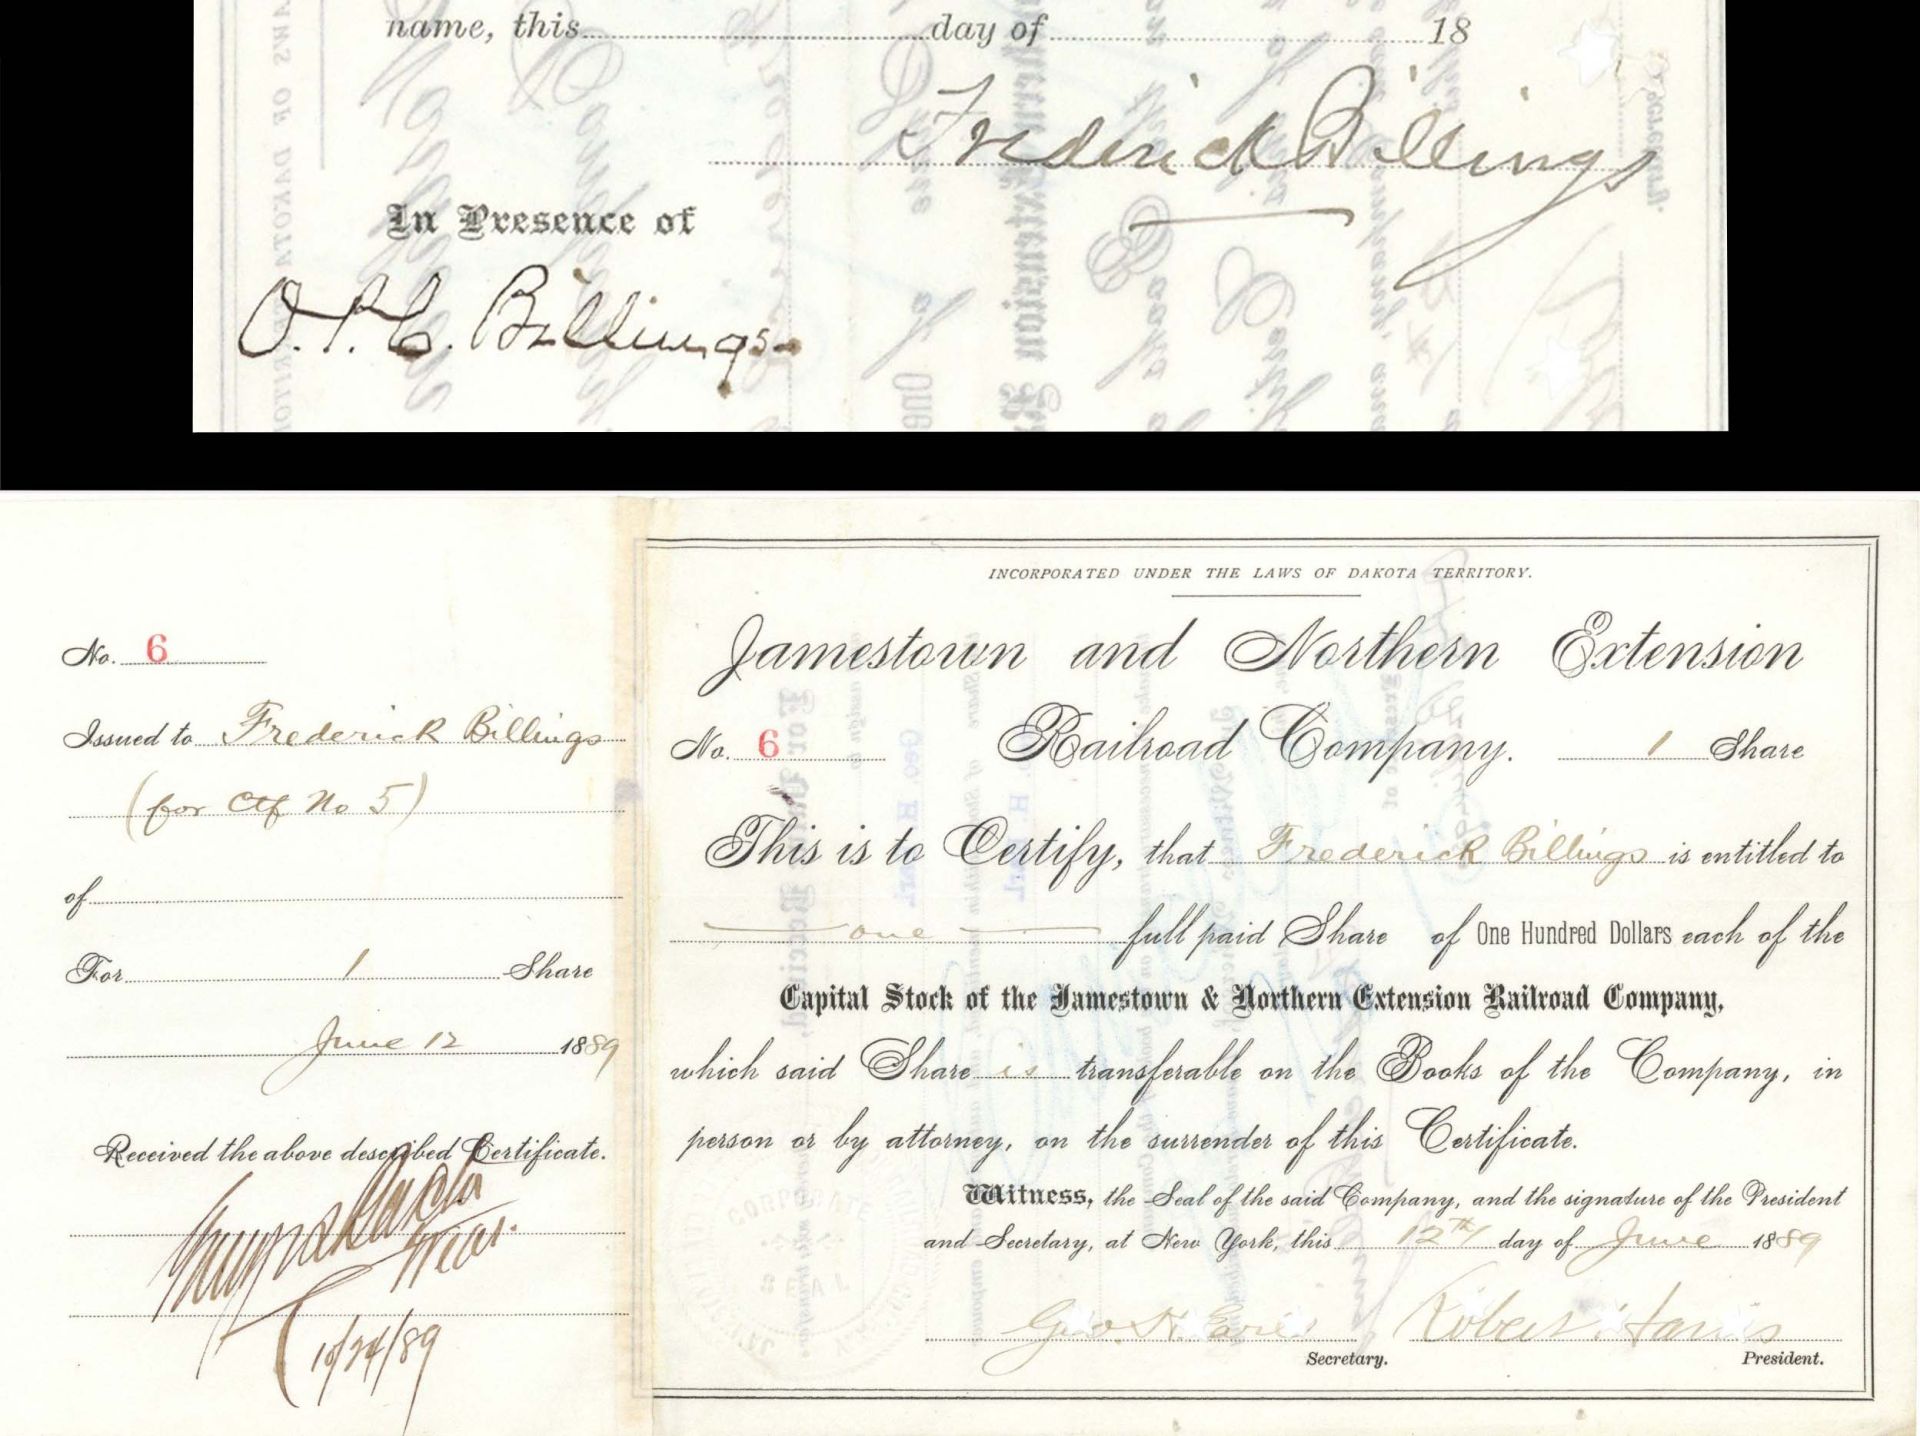 name, this day of 18
Frederick Billings
In Presence of
O.P.C. Billings
No. 6
Issued to Frederick Billings
(for Ctf No 5)
of
For 1 Share
June 12 1889
Received the above described Certificate.
10/24/89
INCORPORATED UNDER THE LAWS OF DAKOTA TERRITORY.
Jamestown and Northern Extension
No. 6 Railroad Company. 1 Share
This is to Certify, that Frederick Billings is entitled to
one full paid Share of One Hundred Dollars each of the
Capital Stock of the Jamestown & Northern Extension Railroad Company,
which said Share is transferable on the Books of the Company, in
person or by attorney, on the surrender of this Certificate.
Witness, the Seal of the said Company, and the signature of the President
and Secretary, at New York, this 12th day of June 1889
Geo. H. Earl Robert Harris
Secretary. President.